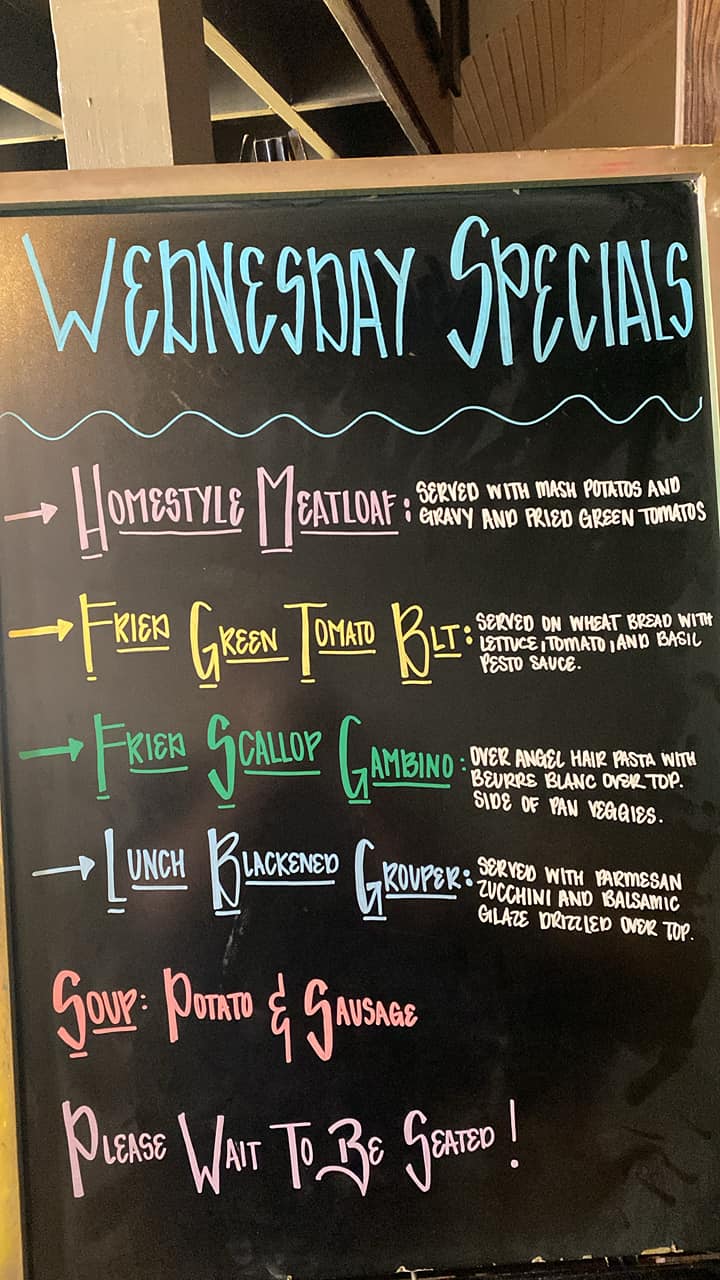 WEDNESDAY SPECIALS
HOMESTYLE MEATLOAF: SERVED WITH MASH POTATOS AND
GRAVY AND FRIED GREEN TOMATOS
FRIED GREEN TOMATO BLT: SERVED ON WHEAT BREAD WITH
LETTUCE, TOMATO, AND BASIL
PESTO SAUCE.
FRIED SCALLOP GAMBINO: OVER ANGEL HAIR PASTA WITH
BEURRE BLANC OVER TOP.
SIDE OF PAN VEGGIES.
LUNCH BLACKENED GROUPER: SERVED WITH PARMESAN
ZUCCHINI AND BALSAMIC
GLAZE DRIZZLED OVER TOP.
SOUP: POTATO & SAUSAGE
PLEASE WAIT TO BE SEATED!